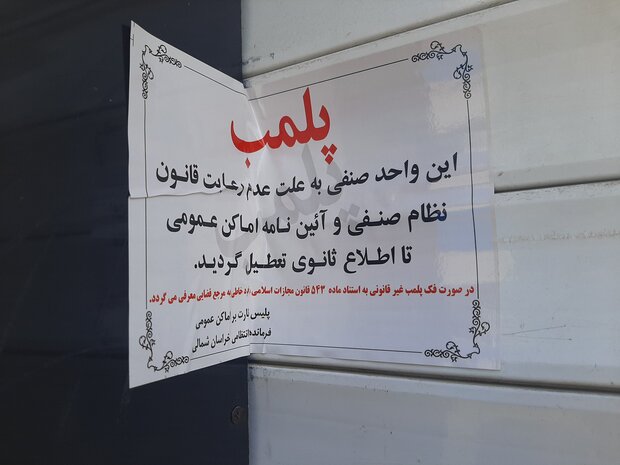 پلمب
این واحد صنفی به علت عدم رعایت قانون
نظام صنفی و آئین نامه اماکن عمومی
تا اطلاع ثانوی تعطیل گردید.
در صورت فک پلمب غیر قانونی به استناد ماده ۵۴۳ قانون مجازات اسلامی فرد خاطی به مرجع قضایی معرفی می گردد.
پلیس نظارت بر اماکن عمومی
فرماندهی انتظامی خراسان شمالی